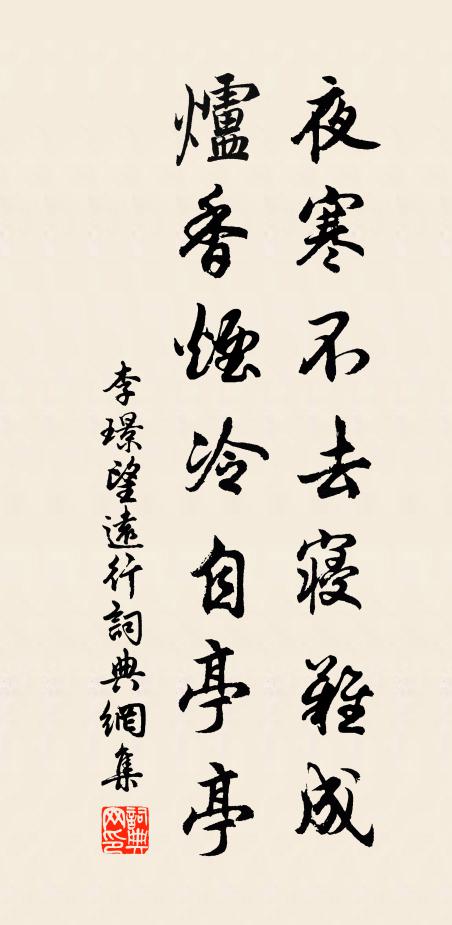 夜寒不去寢難成
爐香煙冷自亭亭
李璟望遠行詞典網集
詞典網印